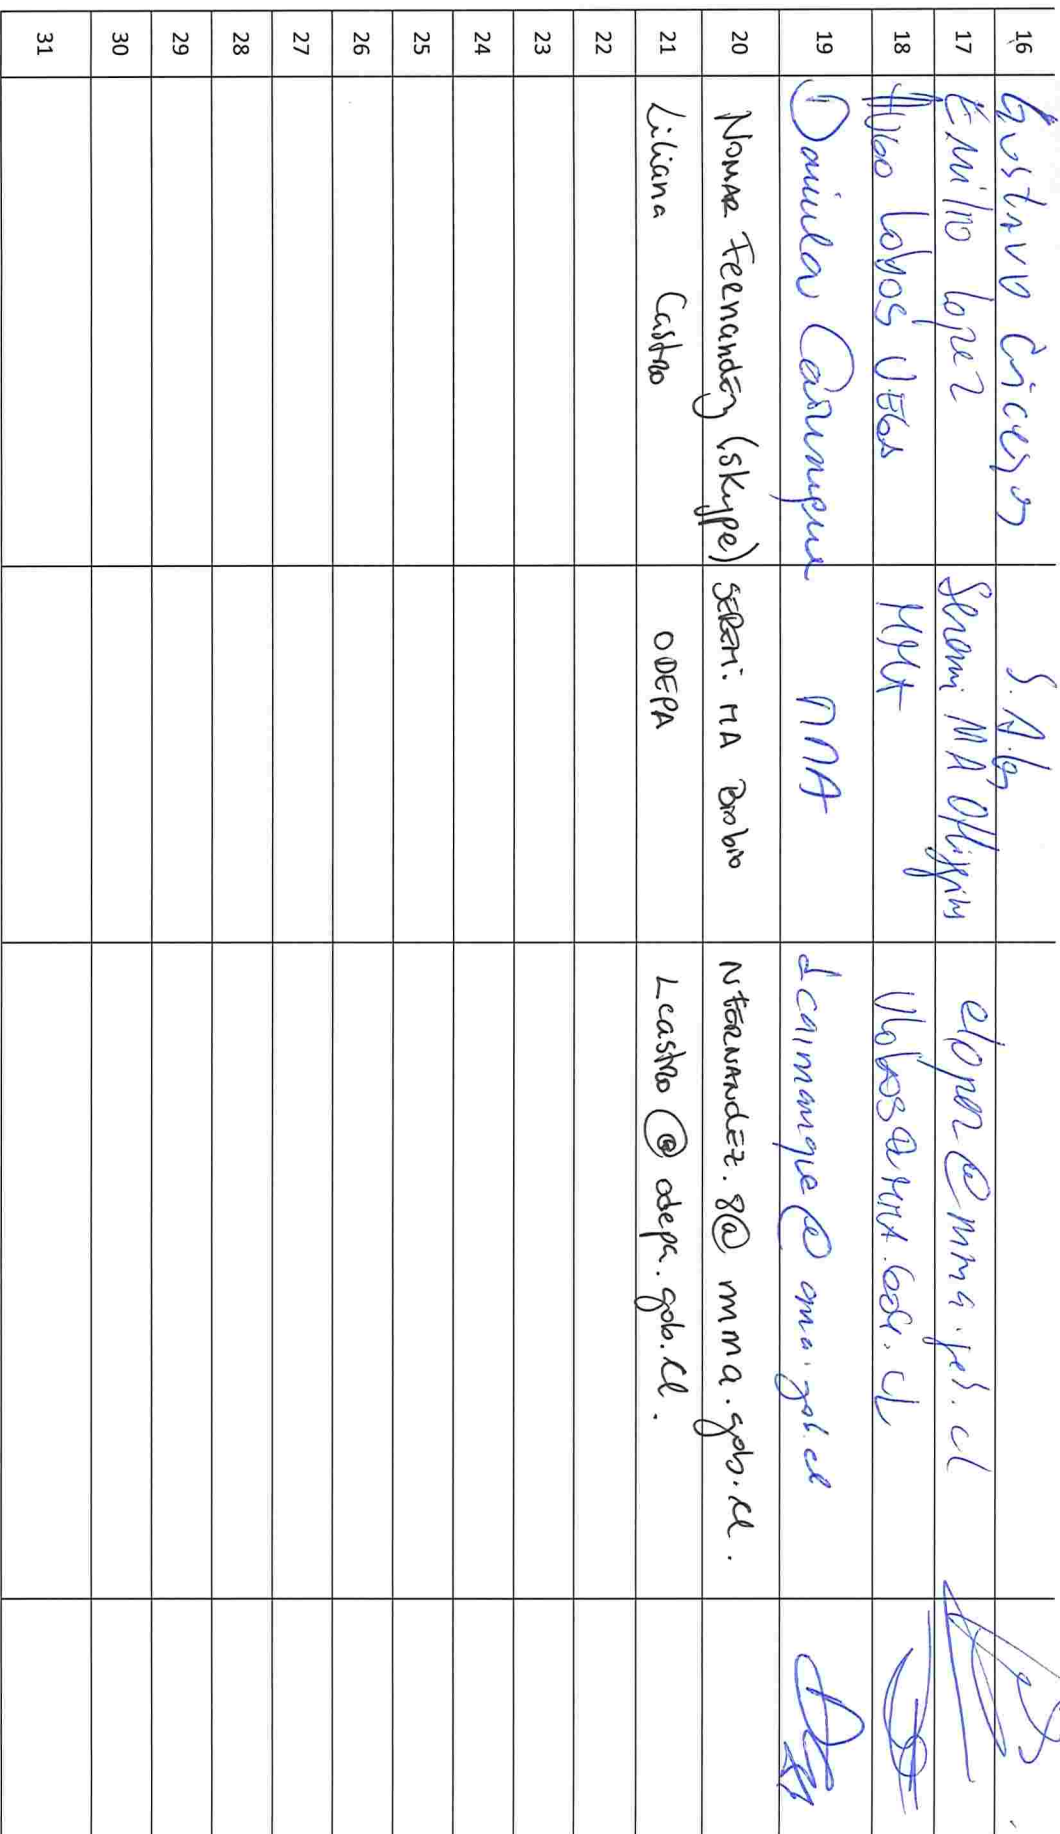 16 Gustavo Cáceres S.A.G.
17 Emilio Lopez Seremi MA OHiggins elopez@mma.gob.cl
18 Hugo Lobos Vega MMA Vlobos@MMA.GOB.CL
19 Daniela Caimanque MMA dcaimanque@mma.gob.cl
20 Nomar Fernandez (skype) SEREMI. MA Biobio NFERNANDEZ.8@mma.gob.cl.
21 Liliana Castro ODEPA Lcastro@odepa.gob.cl.
22
23
24
25
26
27
28
29
30
31